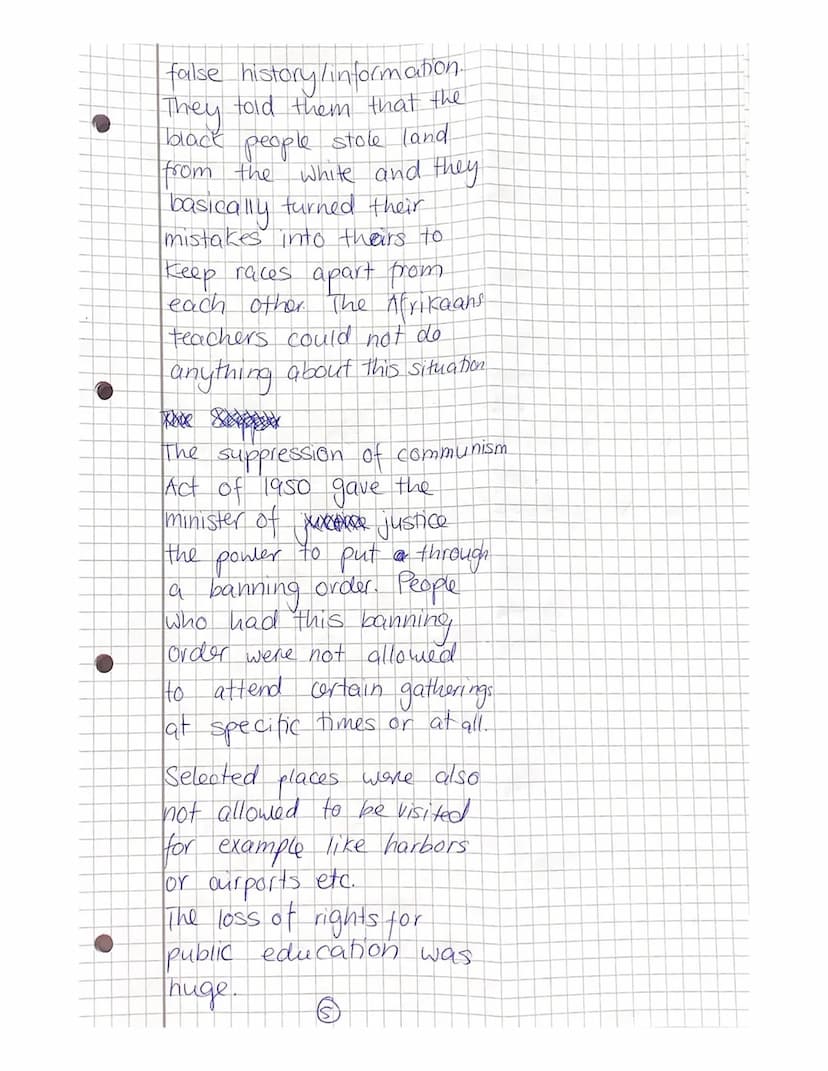 false history/information.
They told them that the
black people stole land
from the white and they
basically turned their
mistakes into theirs to
keep races apart from
each other. The Afrikaans
teachers could not do
anything about this situation
The suppression of communism
Act of 1950 gave the
minister of justice
the power to put through
a banning order. People
who had this banning
order were not allowed
to attend certain gatherings
at specific times or at all.
Selected places were also
not allowed to be visited
for example like harbors
or airports etc.
The loss of rights for
public education was
huge.
5